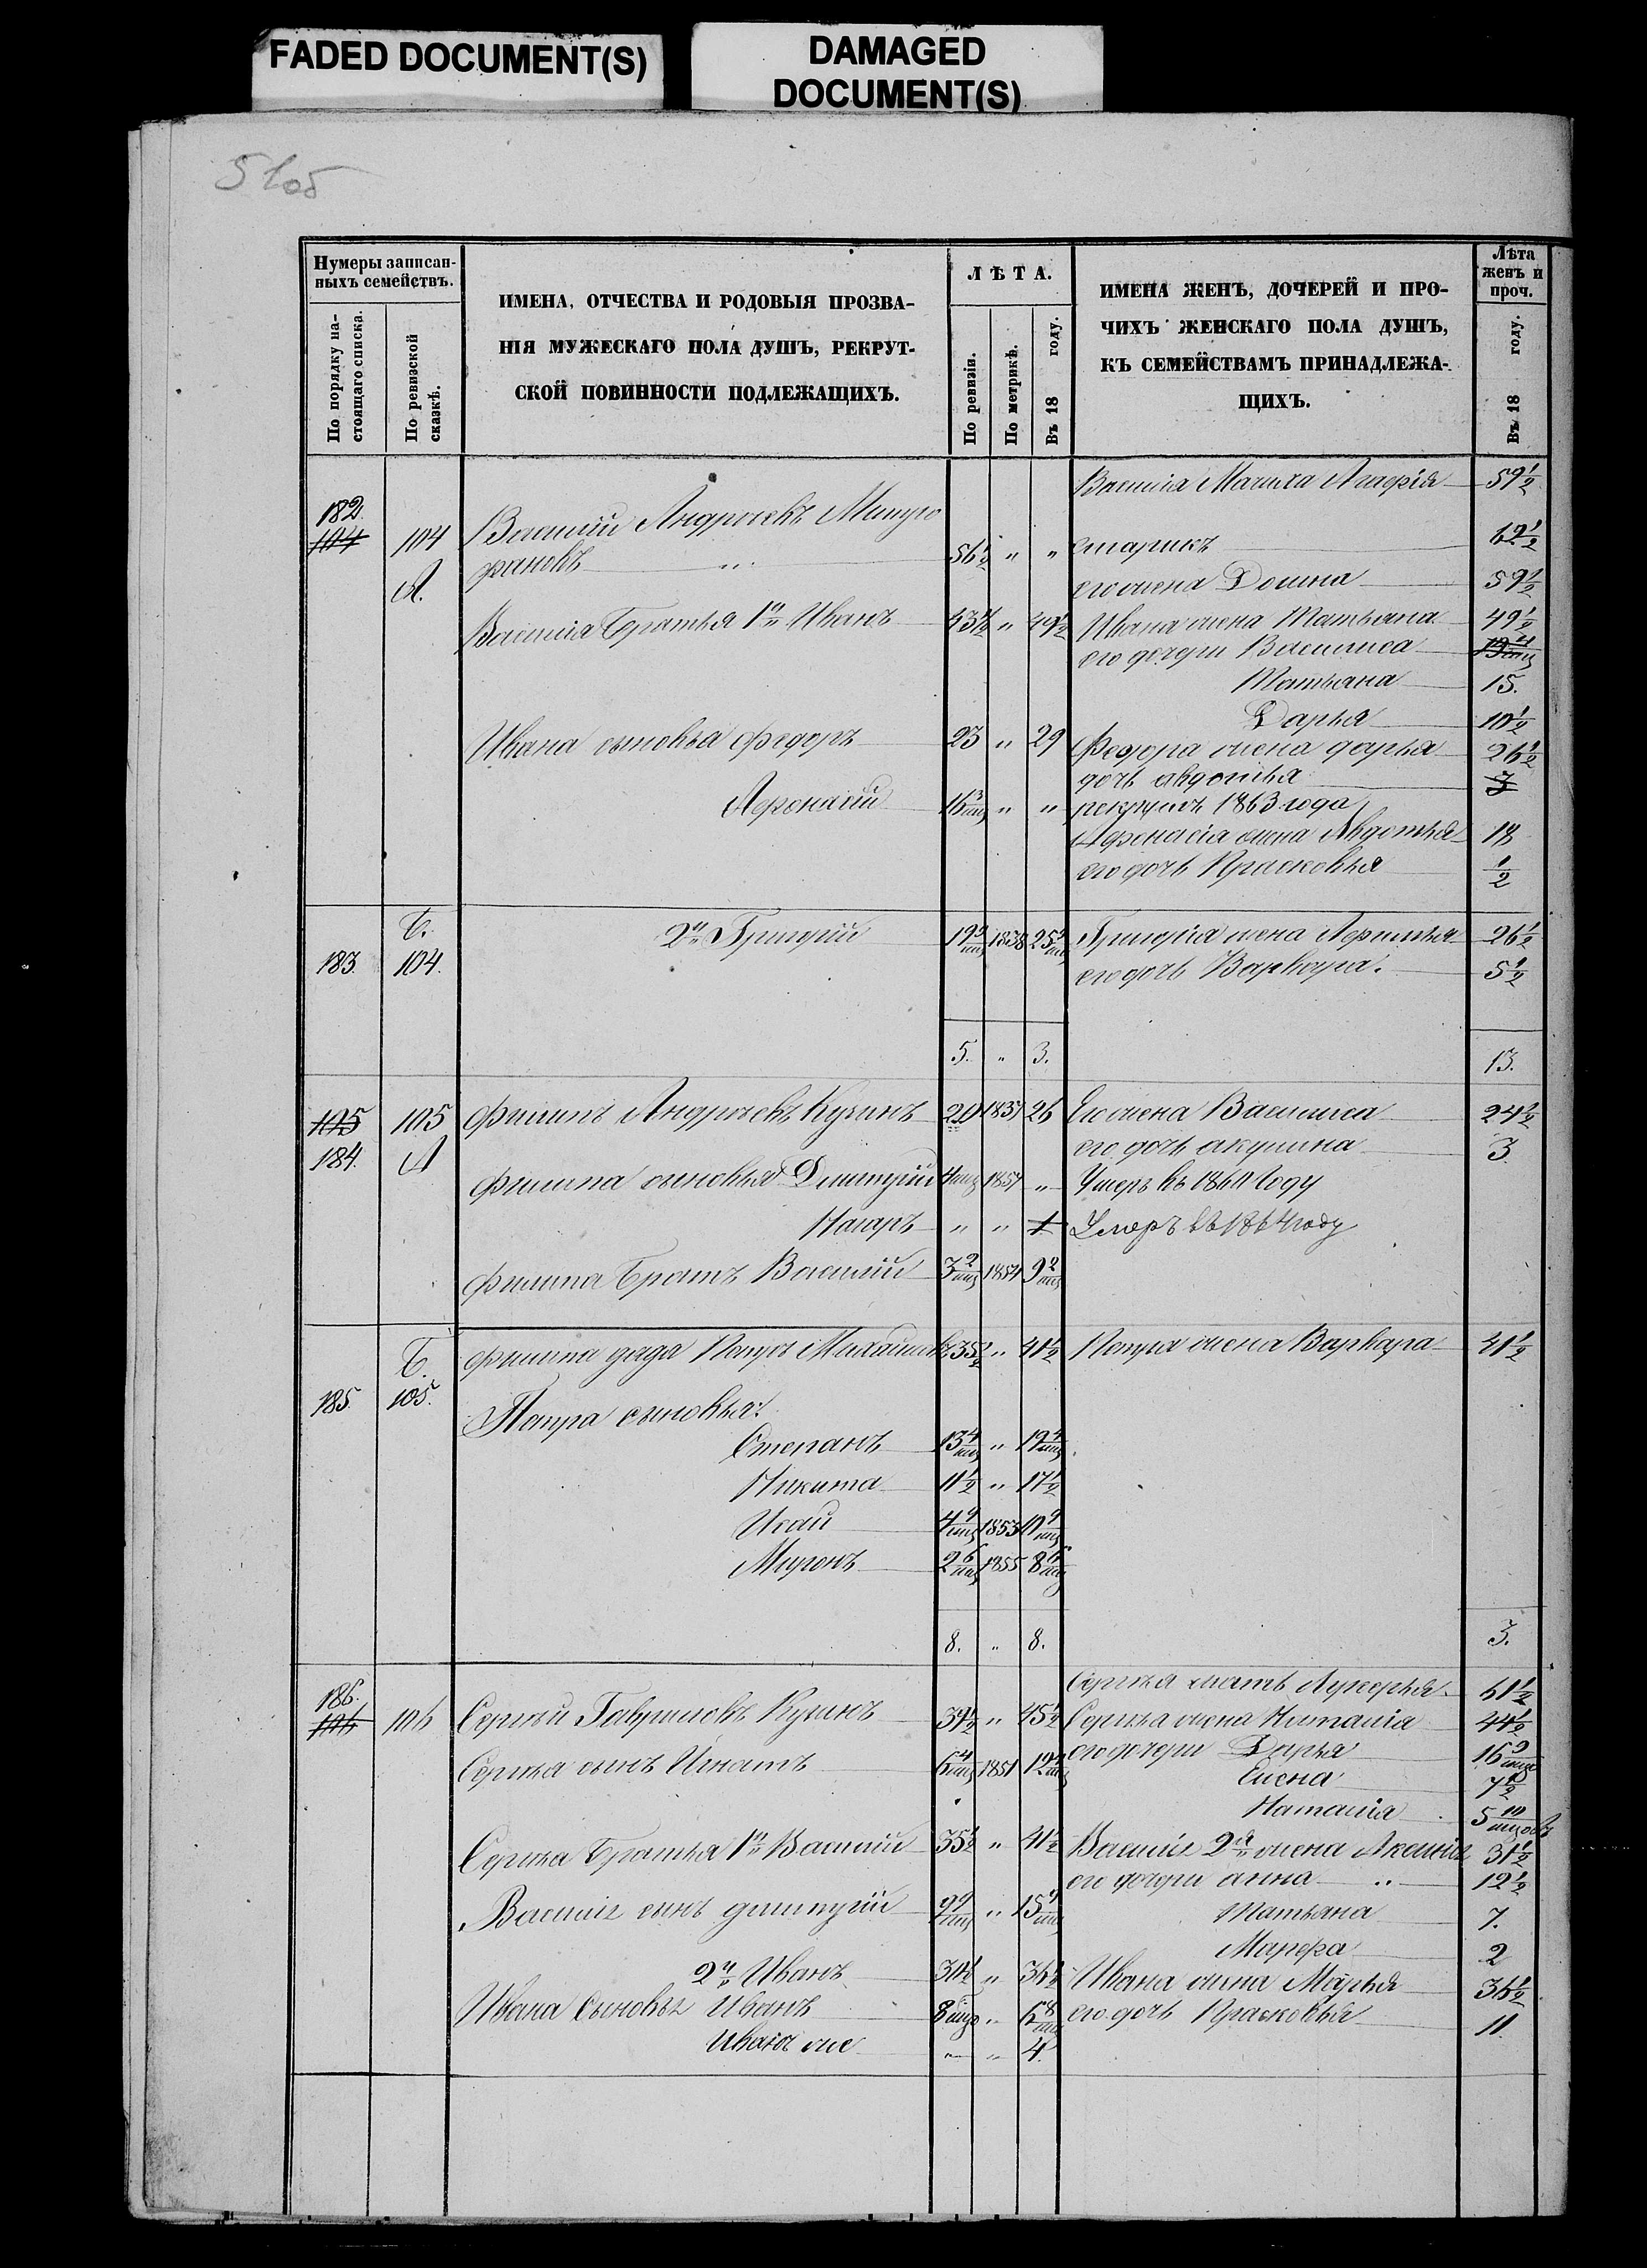 FADED DOCUMENT(S)
DAMAGED
DOCUMENT(S)
51об
Нумеры записан-
ныхъ семействъ.
По порядку на-
стоящаго списка.
По ревизской
сказкѣ.
ИМЕНА, ОТЧЕСТВА И РОДОВЫЯ ПРОЗВА-
НІЯ МУЖЕСКАГО ПОЛА ДУШЪ, РЕКРУТ-
СКОЙ ПОВИННОСТИ ПОДЛЕЖАЩИХЪ.
ЛѢТА.
По ревизіи.
По метрикѣ.
Въ 18 году.
ИМЕНА ЖЕНЪ, ДОЧЕРЕЙ И ПРО-
ЧИХЪ ЖЕНСКАГО ПОЛА ДУШЪ,
КЪ СЕМЕЙСТВАМЪ ПРИНАДЛЕЖА-
ЩИХЪ.
Лѣта
женъ и
проч.
Въ 18 году.
Василія Мачиха Агафія 59 1/2
182
104 104 Василій Андреевъ Митро
фановъ 56 1/2 " " старикъ 62 1/2
А. его жена Домна 59 1/2
Василія братья 1й Иванъ 43 1/2 " 49 1/2 Ивана жена Татьяна 49 1/2
его дочери Василиса
Татьяна 15.
Дарья 10 1/2
Ивана сыновья Федоръ 23 " 29 Федора жена Дарья 26 1/2
дочь Авдотья 7
Афонасій 16 3/мц " " рекрутъ 1863 года
Афонасія жена Авдотья 18
его дочь Прасковья 1/2
Б.
183. 104. 2й Григорій 1838 Григорія жена 26 1/2
его дочь Варвара. 5 1/2
5. " 3. 13.
105 105 Филипъ Андреевъ Кузинъ 20 1837 26 Его жена Василиса 24 1/2
184. А его дочь Акулина 3.
Филипа сыновья Дмитрій 1857 " Умеръ въ 1860 году
Назаръ " " 1 Умеръ въ 1864 году
Филипа братъ Василій 3 2/мц 1854 9 2/мц
Б. Филипа дядя Петръ Михайловъ 35 1/2 " 41 1/2 Петра жена Варвара 41 1/2
185. 105.
Петра сыновья:
Степанъ 13 4/мц " 19 4/мц
Никита 11 1/2 " 17 1/2
Исай 4 9/мц 1853 10 9/мц
Миронъ 2 6/мц 1855 8 6/мц
8. " 8. 3.
Сергѣя мать Лукерья 61 1/2
186.
106 106 Сергѣй Гавриловъ Кузинъ 39 1/2 " 45 1/2 Сергѣя жена Наталія 44 1/2
Сергѣя сынъ Игнатъ 6 4/мц 1851 12 4/мц его дочери Дарья 16 9/мц
Елена 7 1/2
Наталія 5 10/мцовъ
Сергѣя братья 1й Василій 35 1/2 " 41 1/2 Василія 2я жена Аксинія 31 1/2
его дочери Анна 12 1/2
Василія сынъ Дмитрій 9 9/мц " 15 9/мц Татьяна 7.
Марфа 2
2й Иванъ 30 1/2 " 36 1/2 Ивана жена Марья 36 1/2
Ивана сыновья Иванъ 8 мцо " 6 8/мц его дочь Прасковья 11.
Иванъ же " " 4.